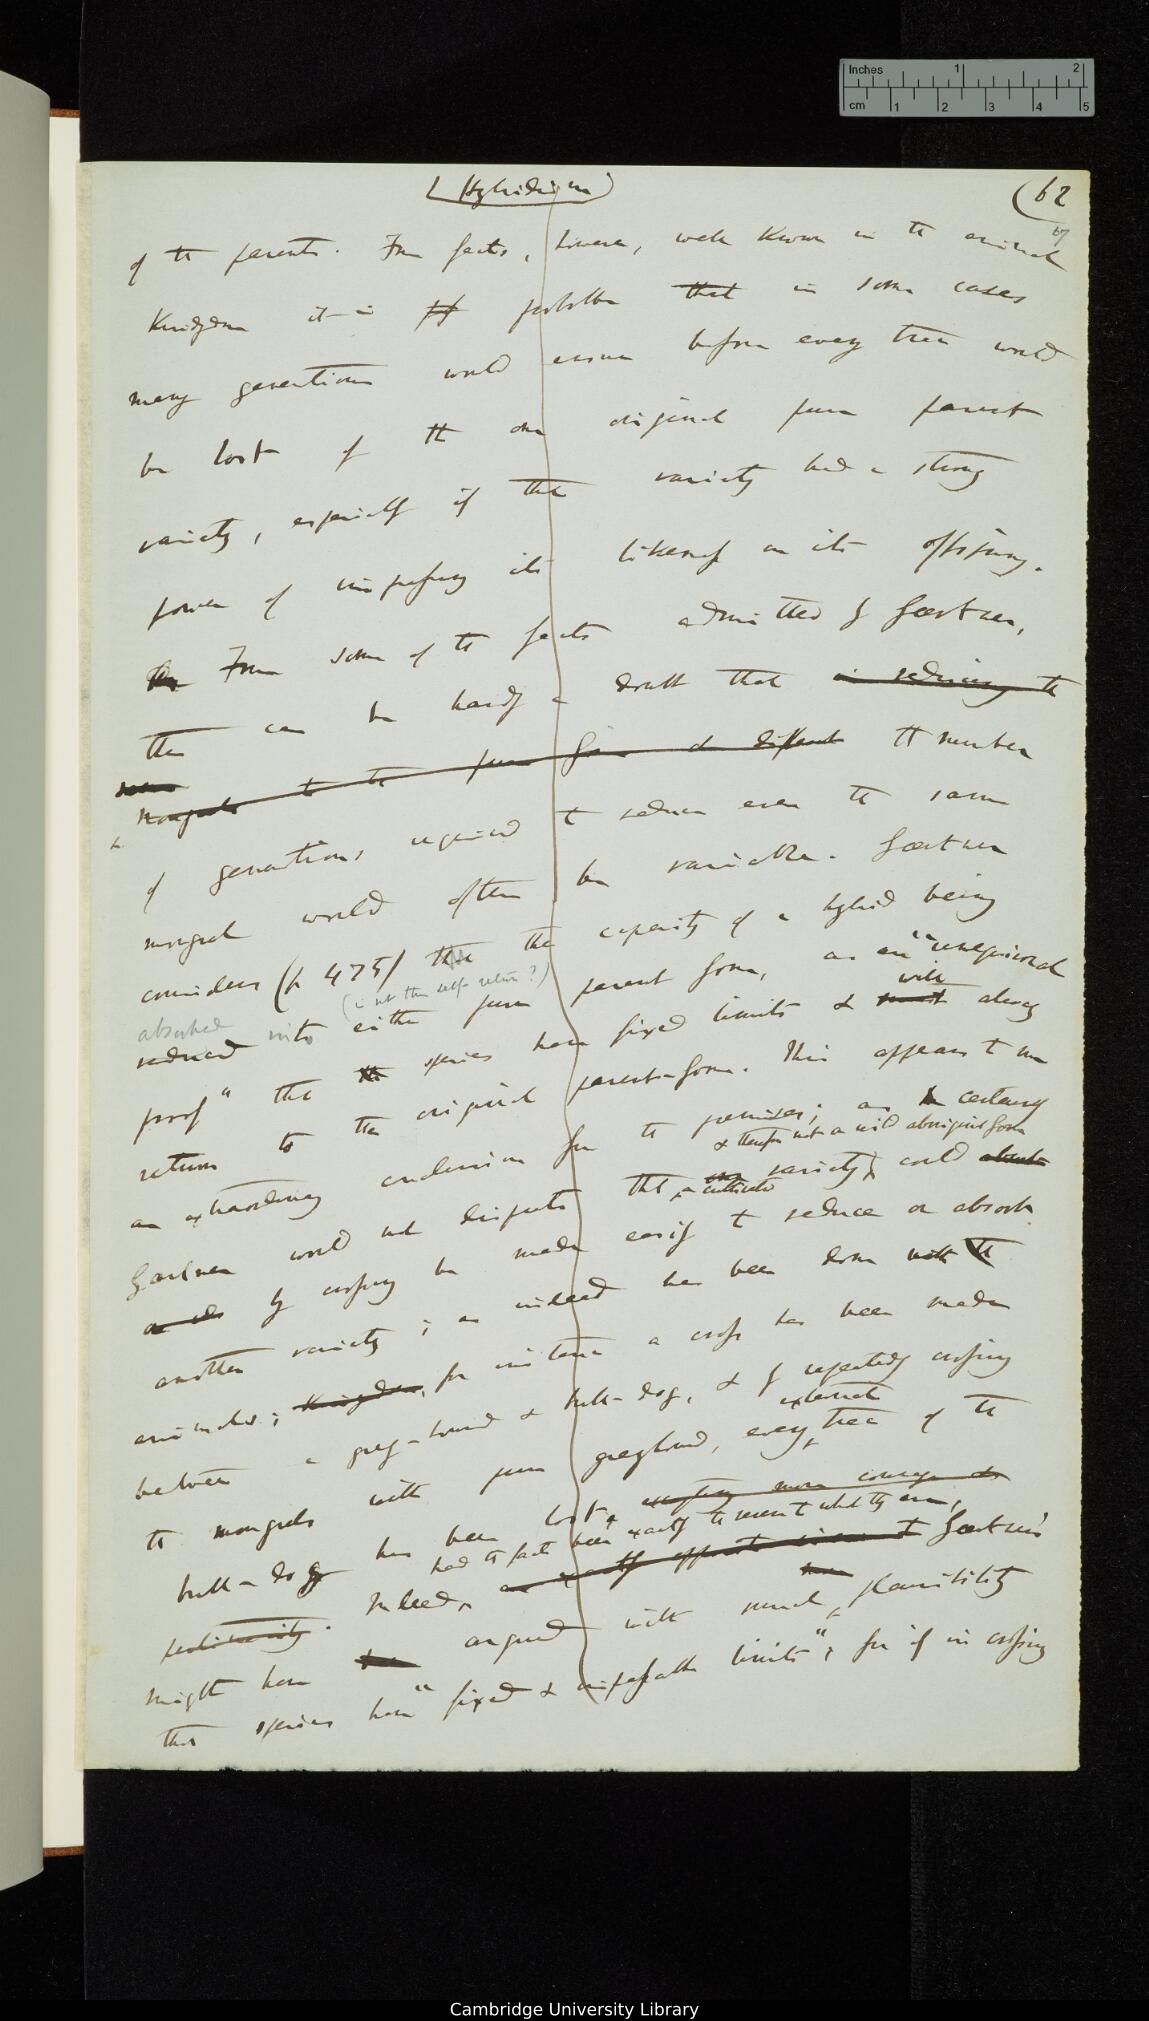 Inches 1 2
cm 1 2 3 4 5
(Hybridism)
(62
of the parents. From facts, however, well known in the animal
Kingdom it is probable that in some cases
many generations would ensue before every trace would
be lost of the one original pure parent
variety, especially if this variety had a strong
power of impressing its likeness on its offspring.
From some of the facts admitted by Gærtner,
there can be hardly a doubt that in reducing the
mongrels to the pure form the number
of generations required to reduce even the same
mongrel would often be variable. Gærtner
considers (p 475) that the capacity of a hybrid being
(is not this self-return?)
absorbed
reduced into either pure parent form, as an "unequivocal
will
proof" that the species have fixed limits & must always
return to the original parent-form. This appears to me
an extraordinary conclusion from the premises; as certainly
& therefore not a wild aboriginal form
Gærtner would not dispute that one variety, could
a cultivated
by crossing be made easily to reduce or absorb
another variety; as indeed has been done with the
animals; Kingdom, for instance a cross has been made
between a grey-hound & bull-dog, & by repeatedly crossing
external
the mongrels with pure greyhound, every trace of the
bull-dog has been lost, excepting more courage &
had the facts been exactly the reverse to what they are,
pertinacity. Indeed, as exactly opposite Gærtner
might have argued with much plausibility
that species have "fixed & impassable limits"; for if in crossing
Cambridge University Library